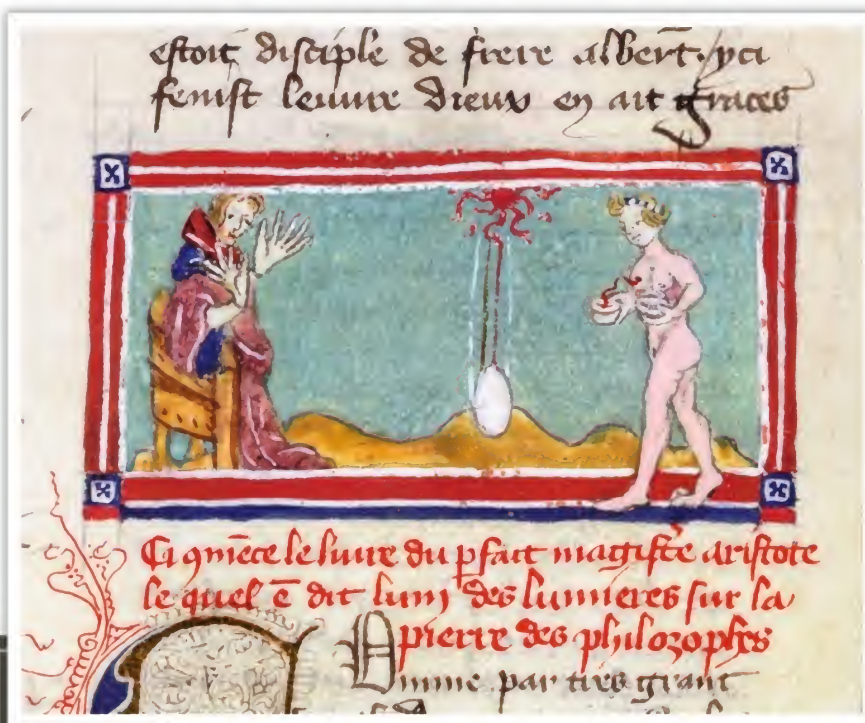 estoit disciple de frere albert. yci
fenist leuure dieux en ait graces
Ci gmēce le liure du pfait magistē aristote
le quel ē dit lumj des lumieres sur la
pierre des philozophes
par tres grant